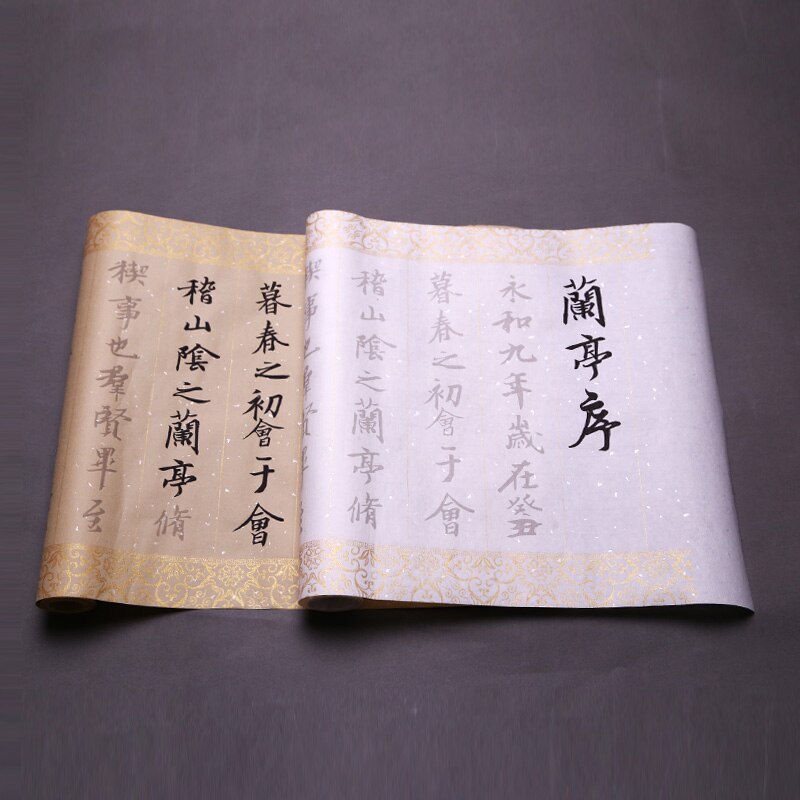 蘭亭序
永和九年歲在癸丑
暮春之初會于會
稽山陰之蘭亭脩
禊事也
暮春之初會于會
稽山陰之蘭亭脩
禊事也羣賢畢至